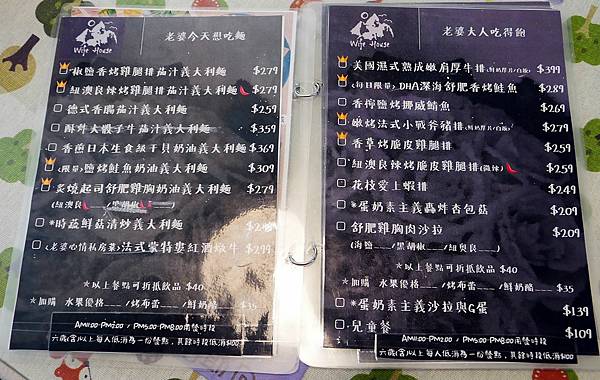 Wife House
老婆今天想吃麵
椒鹽香烤雞腿排茄汁義大利麵 $279
紐澳良辣烤雞腿排茄汁義大利麵 $279
德式香腸茄汁義大利麵 $259
酥炸大骰子牛茄汁義大利麵 $359
香煎日本生食級干貝奶油義大利麵 $369
(限量)鹽烤鮭魚奶油義大利麵 $309
炙燒起司舒肥雞胸奶油義大利麵 $279
(紐奧良 /黑胡椒
*時蔬鮮菇清炒義大利麵
(老婆心情私房菜)法式蒙特婁紅酒燉牛 $299
☆以上餐點可折抵飲品 $40
☆加購 水果優格___/烤布蕾___/鮮奶酪 $35
AM11:00-PM2:00 / PM5:00-PM8:00用餐時段
六歲(含)以上每人低消為一份餐點，其餘時段低消$100
Wife House
老婆大人吃得飽
美國濕式熟成嫩肩厚牛排(鮮奶厚片/白飯) $399
(每日限量)DHA深海舒肥香烤鮭魚 $289
香檸鹽烤挪威鯖魚 $269
嫩烤法式小戰斧豬排(鮮奶厚片/白飯) $279
香草烤脆皮雞腿排 $259
紐澳良辣烤脆皮雞腿排(微辣) $259
花枝愛上蝦排 $249
*蛋奶素主義轟炸杏包菇 $209
舒肥雞胸肉沙拉 $209
(海鹽___/黑胡椒___/紐奧良___)
☆以上餐點可折抵飲品 $40
☆加購 水果優格___/烤布蕾___/鮮奶酪___ $35
*蛋奶素主義沙拉與G蛋 $139
兒童餐 $109
AM11:00-PM2:00 / PM5:00-PM8:00用餐時段
六歲(含)以上每人低消為一份餐點，其餘時段低消$100